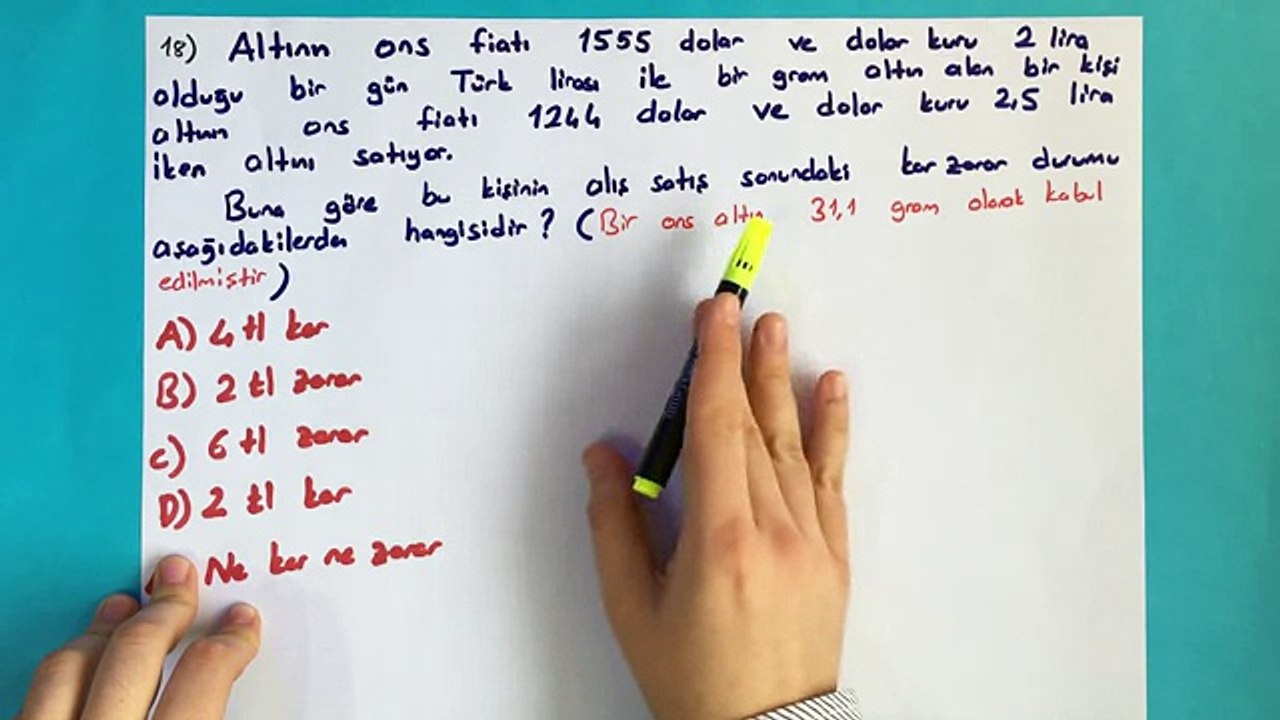 18) Altının ons fiatı 1555 dolar ve dolar kuru 2 lira
olduğu bir gün Türk lirası ile bir gram altın alan bir kişi
altının ons fiatı 1244 dolar ve dolar kuru 2,5 lira
iken altını satıyor.
Buna göre bu kişinin alış satış sonundaki kar zarar durumu
aşağıdakilerden hangisidir? (Bir ons altın 31,1 gram olarak kabul
edilmiştir)
A) 4 tl kar
B) 2 tl zarar
C) 6 tl zarar
D) 2 tl kar
Ne kar ne zarar